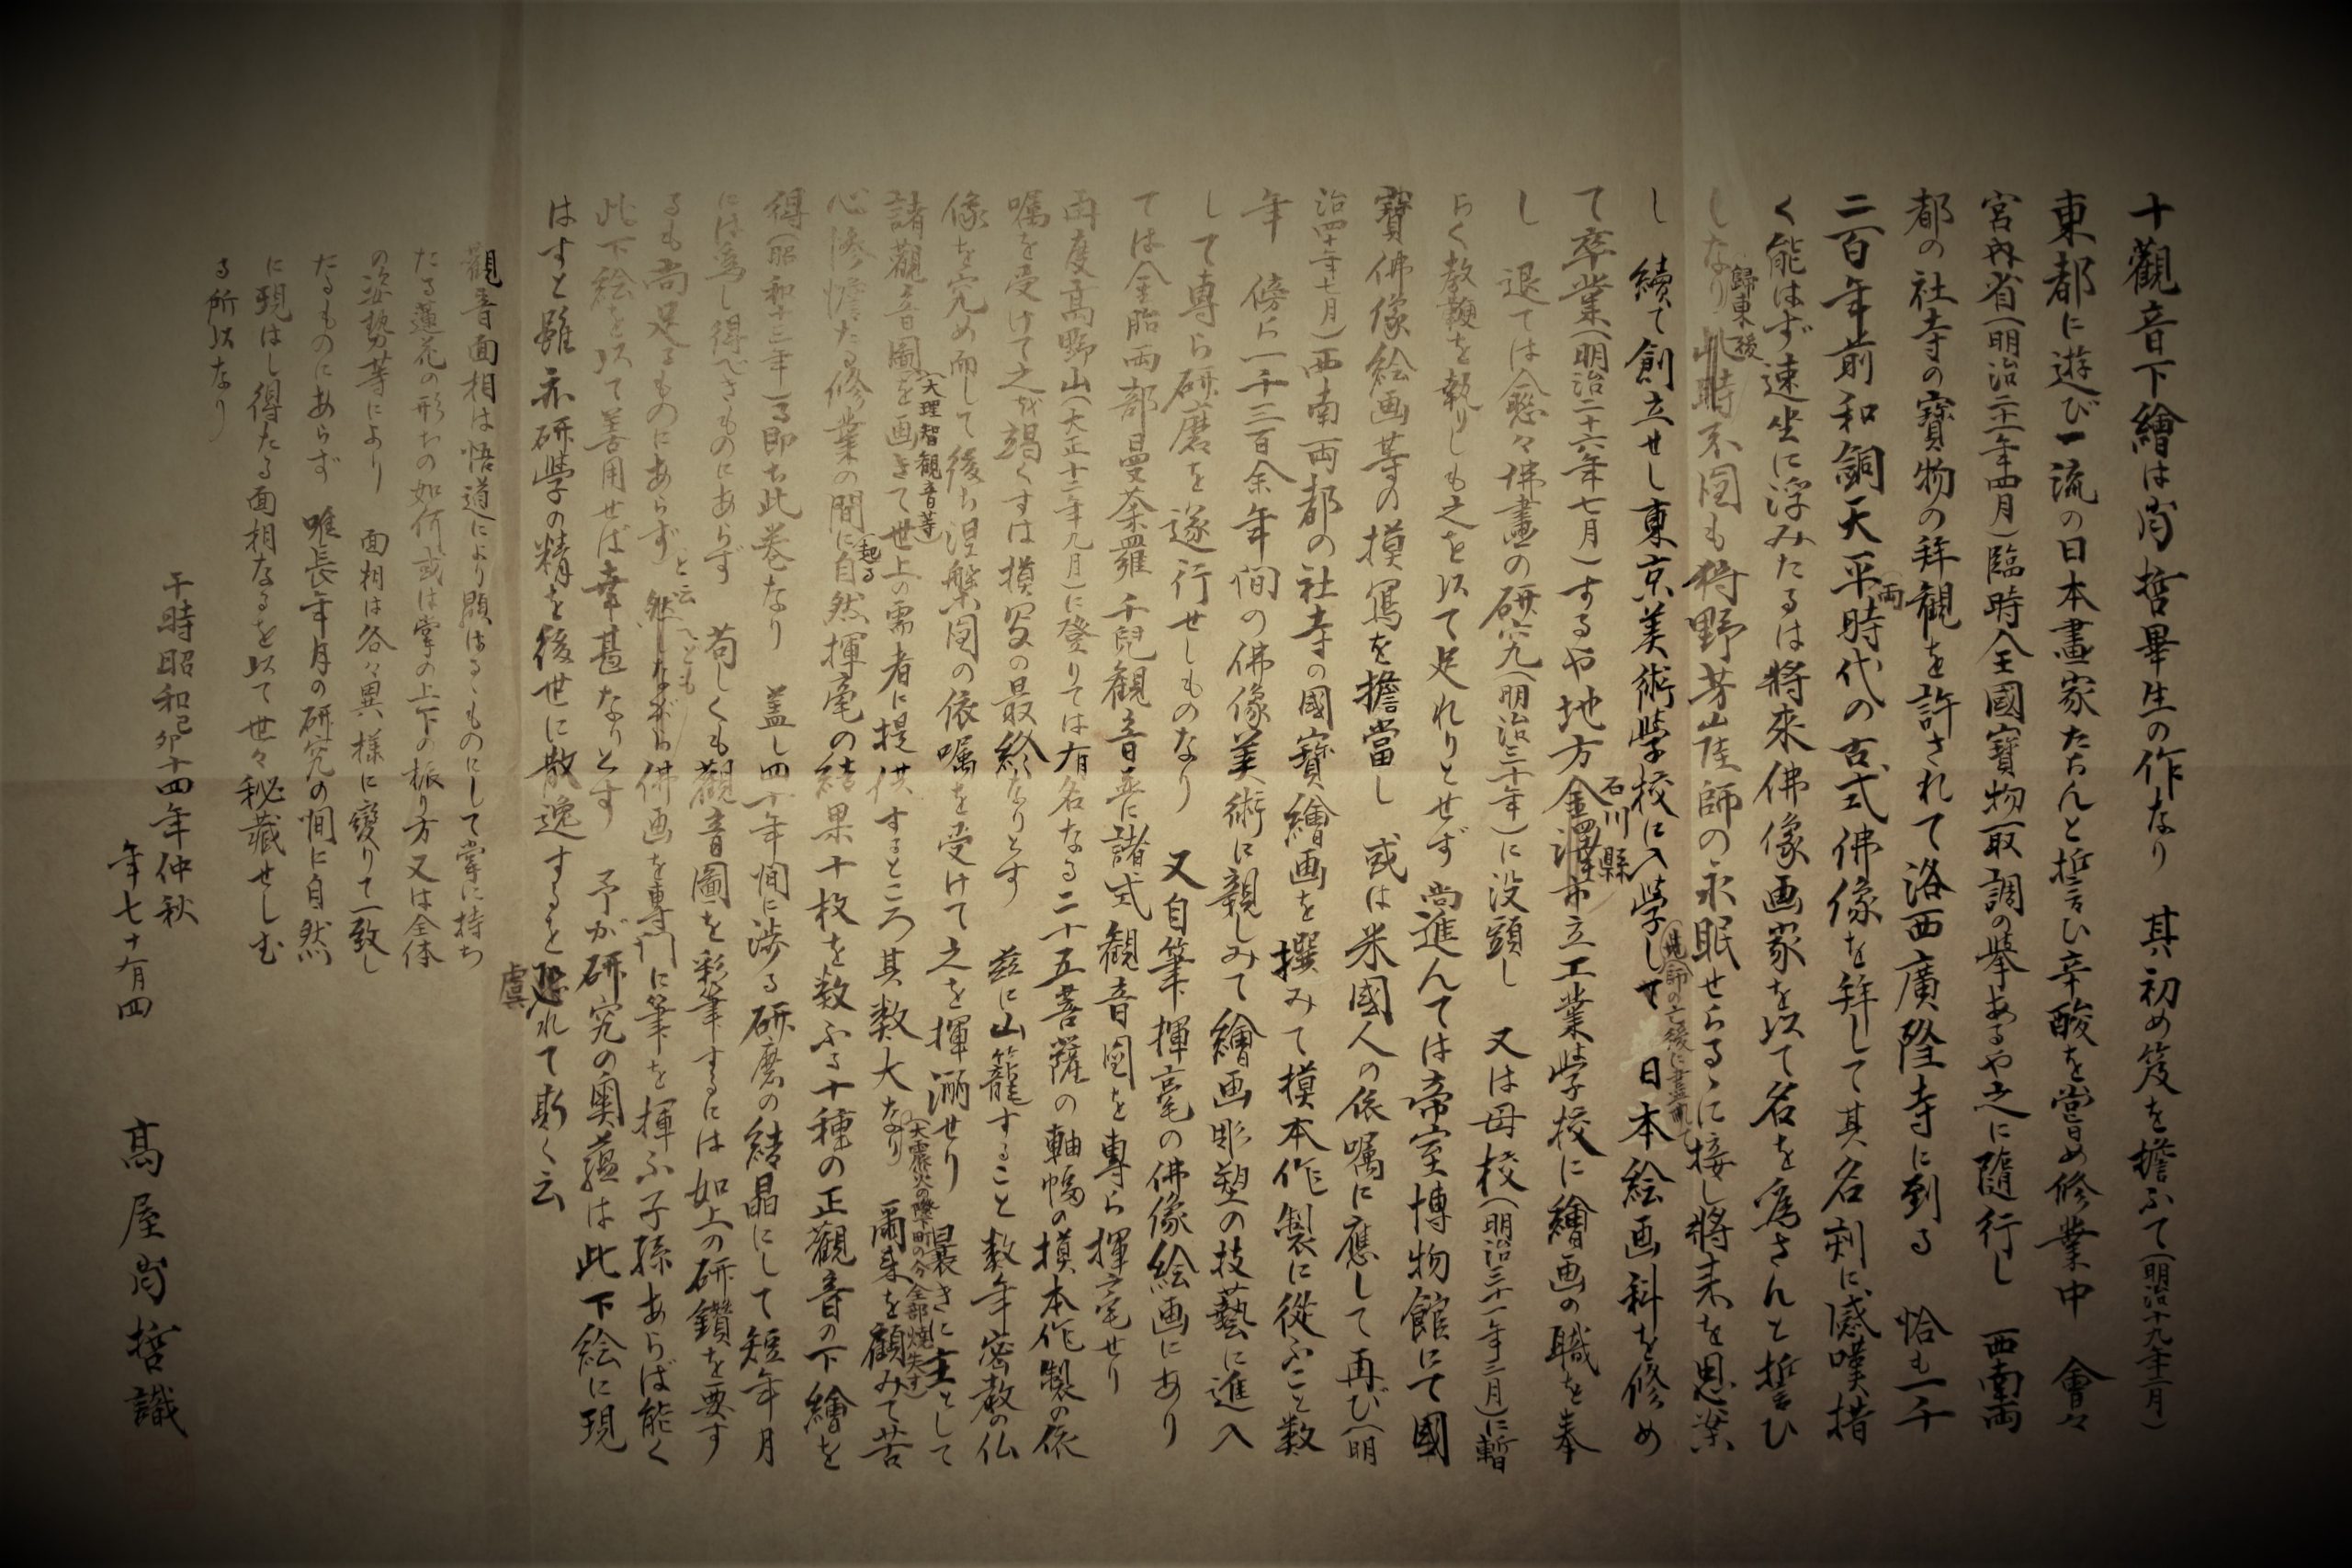 十觀音下繪は尚哲畢生の作なり 其初め笈を擔ふて(明治十九年二月)
東都に遊び一流の日本畫家たらんと誓ひ辛酸を嘗め修業中 會々
宮內省(明治二十一年四月)臨時全國寶物取調の擧あるや之に隨行し 西南両
都の社寺の寶物の拜観を許されて洛西廣隆寺に到る 恰も一千
二百年前和銅天平両時代の古式佛像を拜して其名刹に感嘆措
く能はず速坐に浮みたるは將來佛像画家を以て名を為さんと誓ひ
しなり 歸東後 此時不図も狩野芳崖師の永眠せらるゝに接し將来を思案
し 續て創立せし東京美術學校に入學して 日本絵画科を修め
先師の亡後に
て卒業(明治二十六年七月)するや地方石川縣金澤市立工業學校に繪画の職を奉
し 退ては愈々佛畫の研究(明治三十年)に没頭し 又は母校(明治三十一年三月)に暫
らく教鞭を執りしも之を以て足れりとせず尚進んては帝室博物館にて國
寶佛像絵画等の摸寫を擔當し 或は米國人の依嘱に應して再び(明
治四十年七月)西南両都の社寺の國寶繪画を撰みて摸本作製に從ふこと数
年 傍ら一千三百余年間の佛像美術に親しみて繪画彫塑の技藝に進入
して専ら研磨を遂行せしものなり 又自筆揮毫の佛像絵画にあり
ては金胎両部曼荼羅千兒観音並に諸式観音図を専ら揮毫せり
両度高野山(大正十二年九月)に登りては有名なる二十五菩薩の軸幅の摸本作製の依
嘱を受けて之を竭くすは摸写の最終なりとす 茲に山籠すること数年密教の仏
像を究め而して後ち涅槃図の依嘱を受けて之を揮洒せり 曩きに主として
諸觀音圖を画きて(大理智観音等)世上の需者に提供するところ其数大なり(大震火の際下町の分全部燒失す) 爾来を顧みて苦
心惨憺たる修業の間に起る自然揮毫の結果十枚を数ふる十種の正觀音の下繪を
得(昭和十三年)る即ち此巻なり 蓋し四十年間に渉る研磨の結晶にして短年月
には為し得べきものにあらず 苟しくも觀音圖を彩筆するには如上の研鑽を要す
るも尚足るものにあらずと云へども 然しながら佛画を専門に筆を揮ふ子孫あらば能く
此下絵を以て善用せば幸甚なりとす 予が研究の奥蘊は此下絵に現
はすと雖 亦研學の精を後世に散逸するを虞れて斯く云
觀音面相は悟道により顕はるゝものにして掌に持ち
たる蓮花の形ちの如何或は掌の上下の振り方又は全体
の姿勢等により 面相は各々異様に變りて一致し
たるものにあらず 唯長年月の研究の間に自然
に現はし得たる面相なるを以て世々秘藏せしむ
る所以なり
于時昭和己卯十四年仲秋
年七十有四
髙屋尚哲識